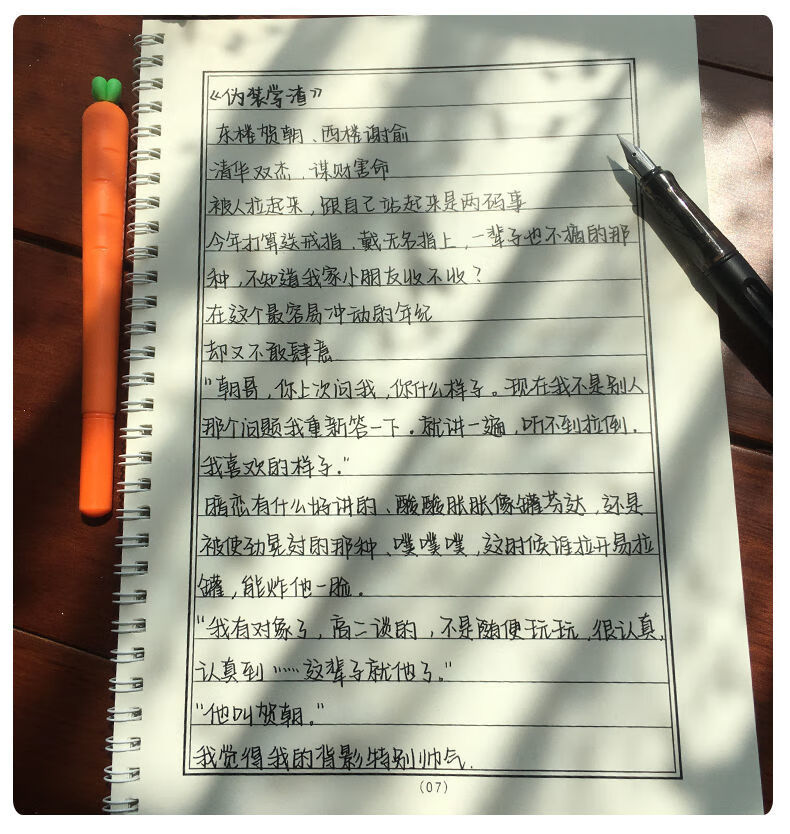 《伪装学渣》
东楼贺朝、西楼谢俞
清华双杰，谋财害命
被人拉起来，跟自己站起来是两码事
今年打算送戒指，戴无名指上，一辈子也不摘的那
种，不知道我家小朋友收不收？
在这个最容易冲动的年纪
却又不敢肆意
"朝哥，你上次问我，你什么样子。现在我不是别人
那个问题我重新答一下。就讲一遍，听不到拉倒。
我喜欢的样子。"
暗恋有什么好讲的、酸酸胀胀像罐芬达，还是
被使劲晃过的那种、噗噗噗，这时候谁拉开易拉
罐，能炸他一脸。
"我有对象了，高二谈的，不是随便玩玩，很认真，
认真到……这辈子就他了。"
"他叫贺朝。"
我觉得我的背影特别帅气.
(07)